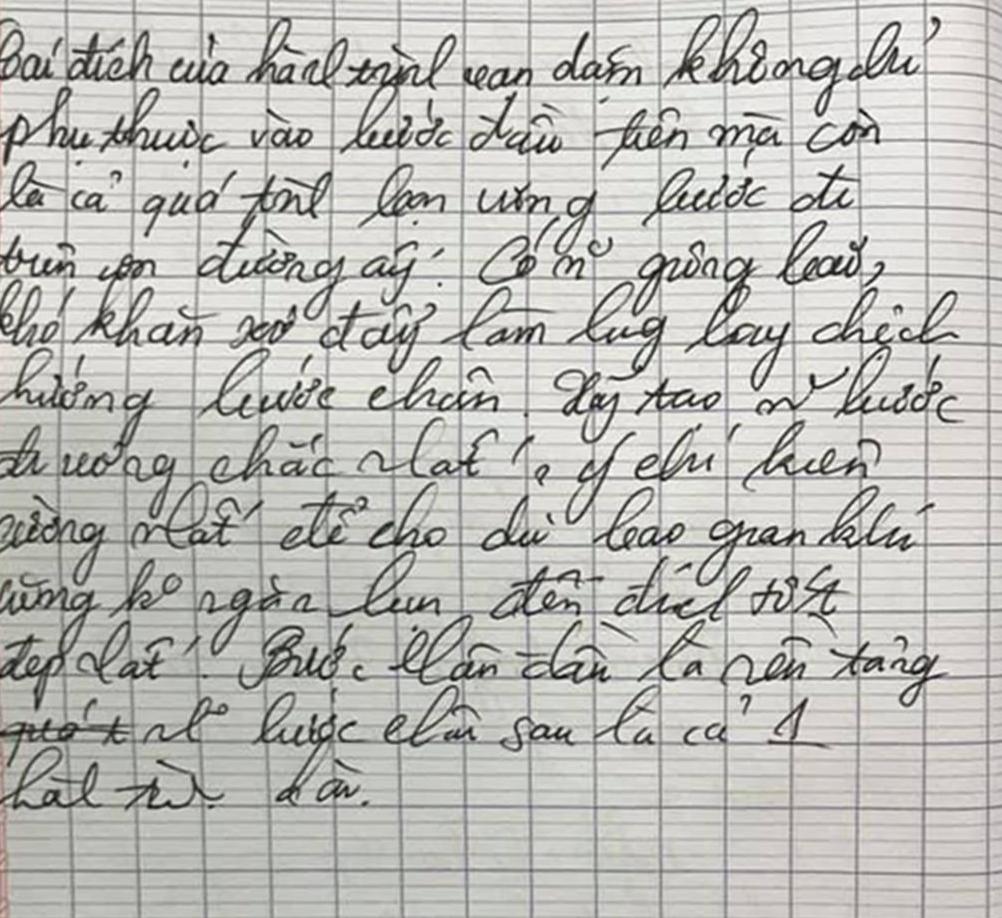 Cái đích của hành trình vạn dặm không chỉ
phụ thuộc vào bước đầu tiên mà còn
là cả quá trình bạn từng bước đi
trên con đường ấy. Có n~ giông bão,
khó khăn xô đẩy làm lung lay chệch
hướng bước chân. Hãy tạo n~ bước
đi vững chắc nhất, ý chí kiên
cường nhất để cho dù bao gian khó
cũng ko ngần đến đích tốt
đẹp nhất. Bước chân đầu là nền tảng
bước chân sau là cả 1
hành trình dài.